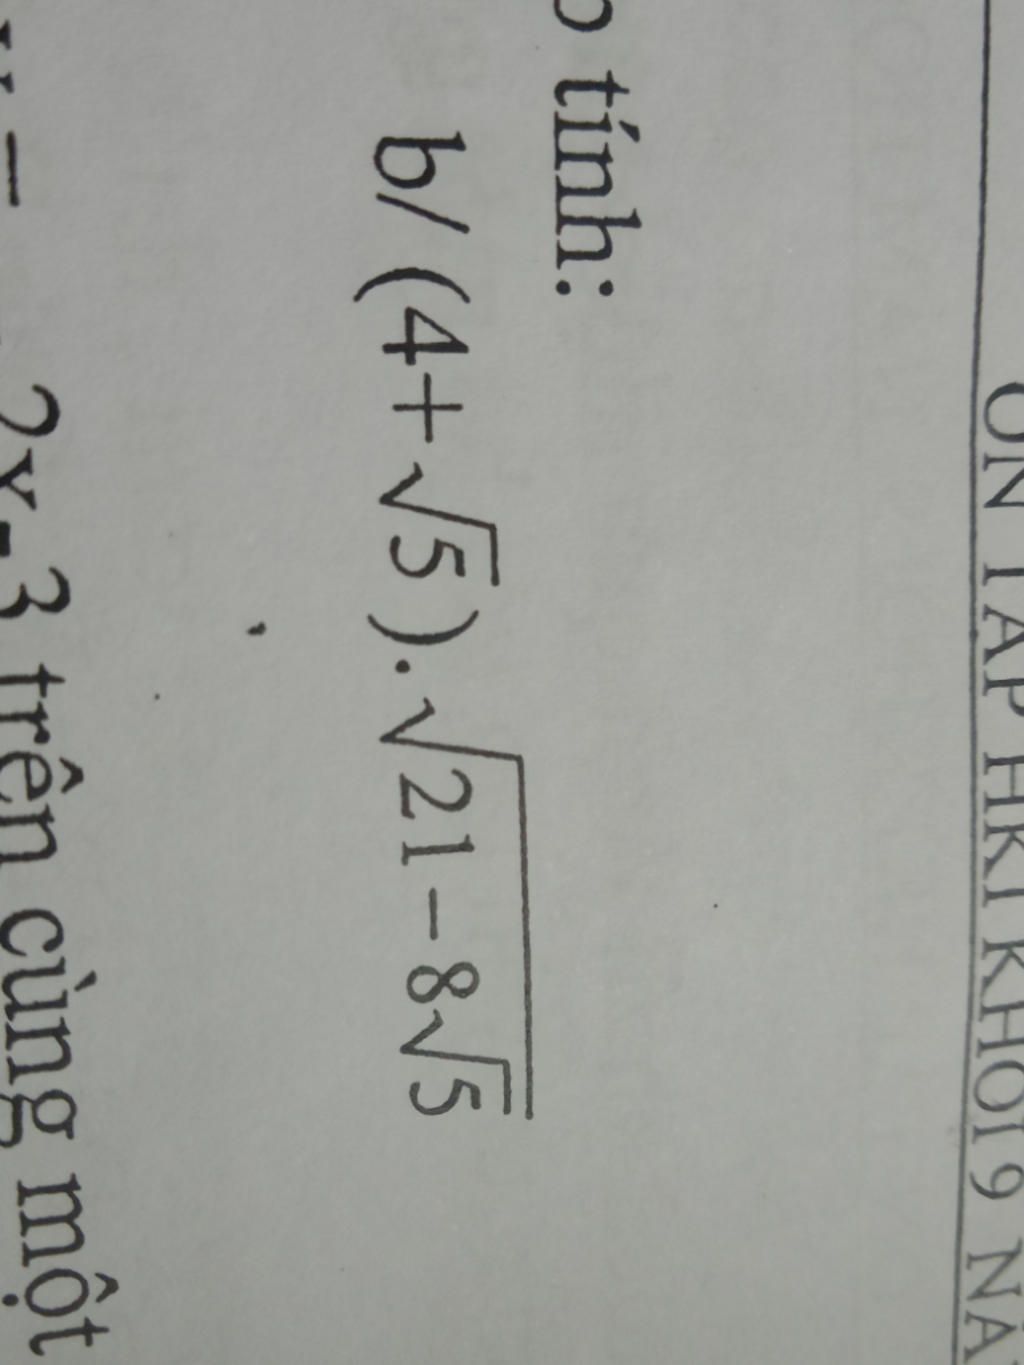 ÔN TẬP HKI KHỐI 9
tính:
b/ (4+√5).√(21−8√5)
2x-3 trên cùng một